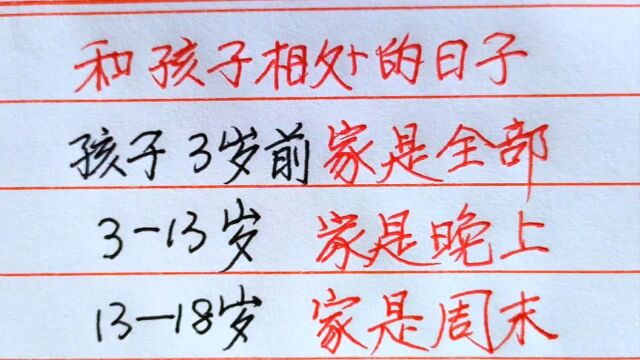 和孩子相处的日子
孩子3岁前家是全部
3-13岁 家是晚上
13-18岁 家是周末